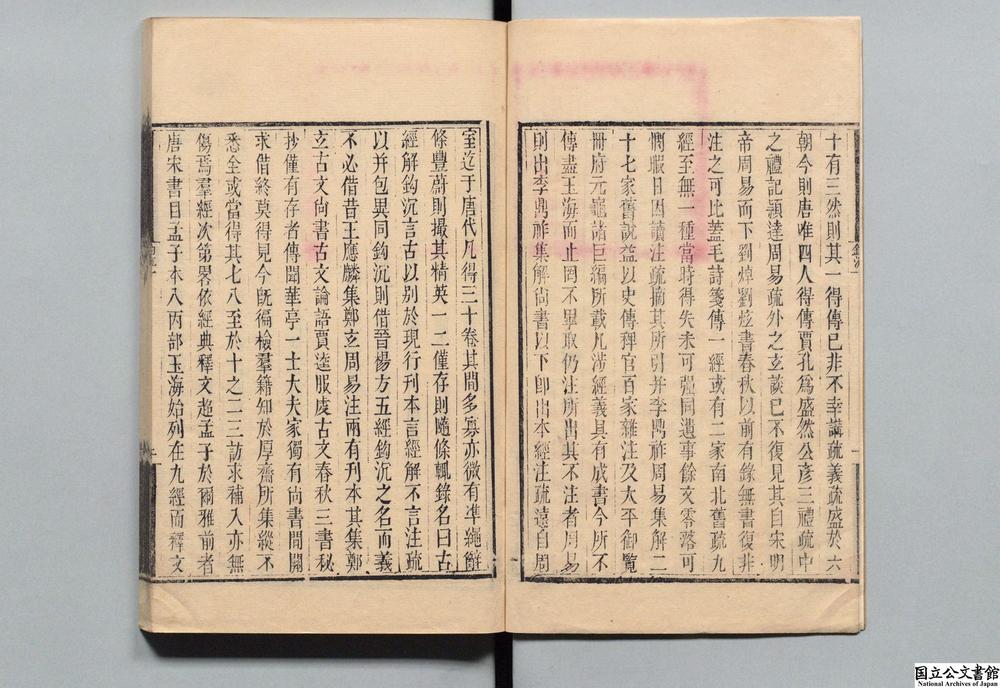 十有三然則其一得傳已非不幸講疏義疏盛於六
朝今則唐唯四人得傳賈孔爲盛然公彦三禮疏中
之禮記穎達周易疏外之玄談已不復見其自宋明
帝周易而下劉焯劉炫書春秋以前有錄無書復非
注之可比蓋毛詩箋傳一經或有二家南北舊疏九
經至無一種當時得失未可彊同遺事餘文零落可
惘暇日因讀注疏摘其所引并李鼎祚周易集解二
十七家舊說益以史傳稗官百家雜注及太平御覽
冊府元龜諸巨編所載凡涉經義具有成書今所不
傳盡玉海而止罔不畢取仍注所出其不注者周易
則出李鼎祚集解尙書以下卽出本經注疏遠自周
室迄于唐代凡得三十卷其間多寡亦微有準繩雖
條豐蔚則撮其精英一二僅存則隨條輒錄名曰古
經解鈎沉言古以别於現行刊本言經解不言注疏
以并包異同鈎沉則借晉楊方五經鈎沉之名而義
不必借昔王應麟集鄭玄周易注兩有刊本其集鄭
玄古文尙書古文論語賈逵服虔古文春秋三書秘
抄僅有存者傳聞華亭一士大夫家獨有尙書間關
求借終莫得見今旣徧檢羣籍知於厚齋所集縱不
悉全或當得其七八至於十之二三訪求補入亦無
傷焉羣經次第畧依經典釋文超孟子於爾雅前者
唐宋書目孟子本入丙部玉海始列在九經而釋文
国立公文書館
National Archives of Japan